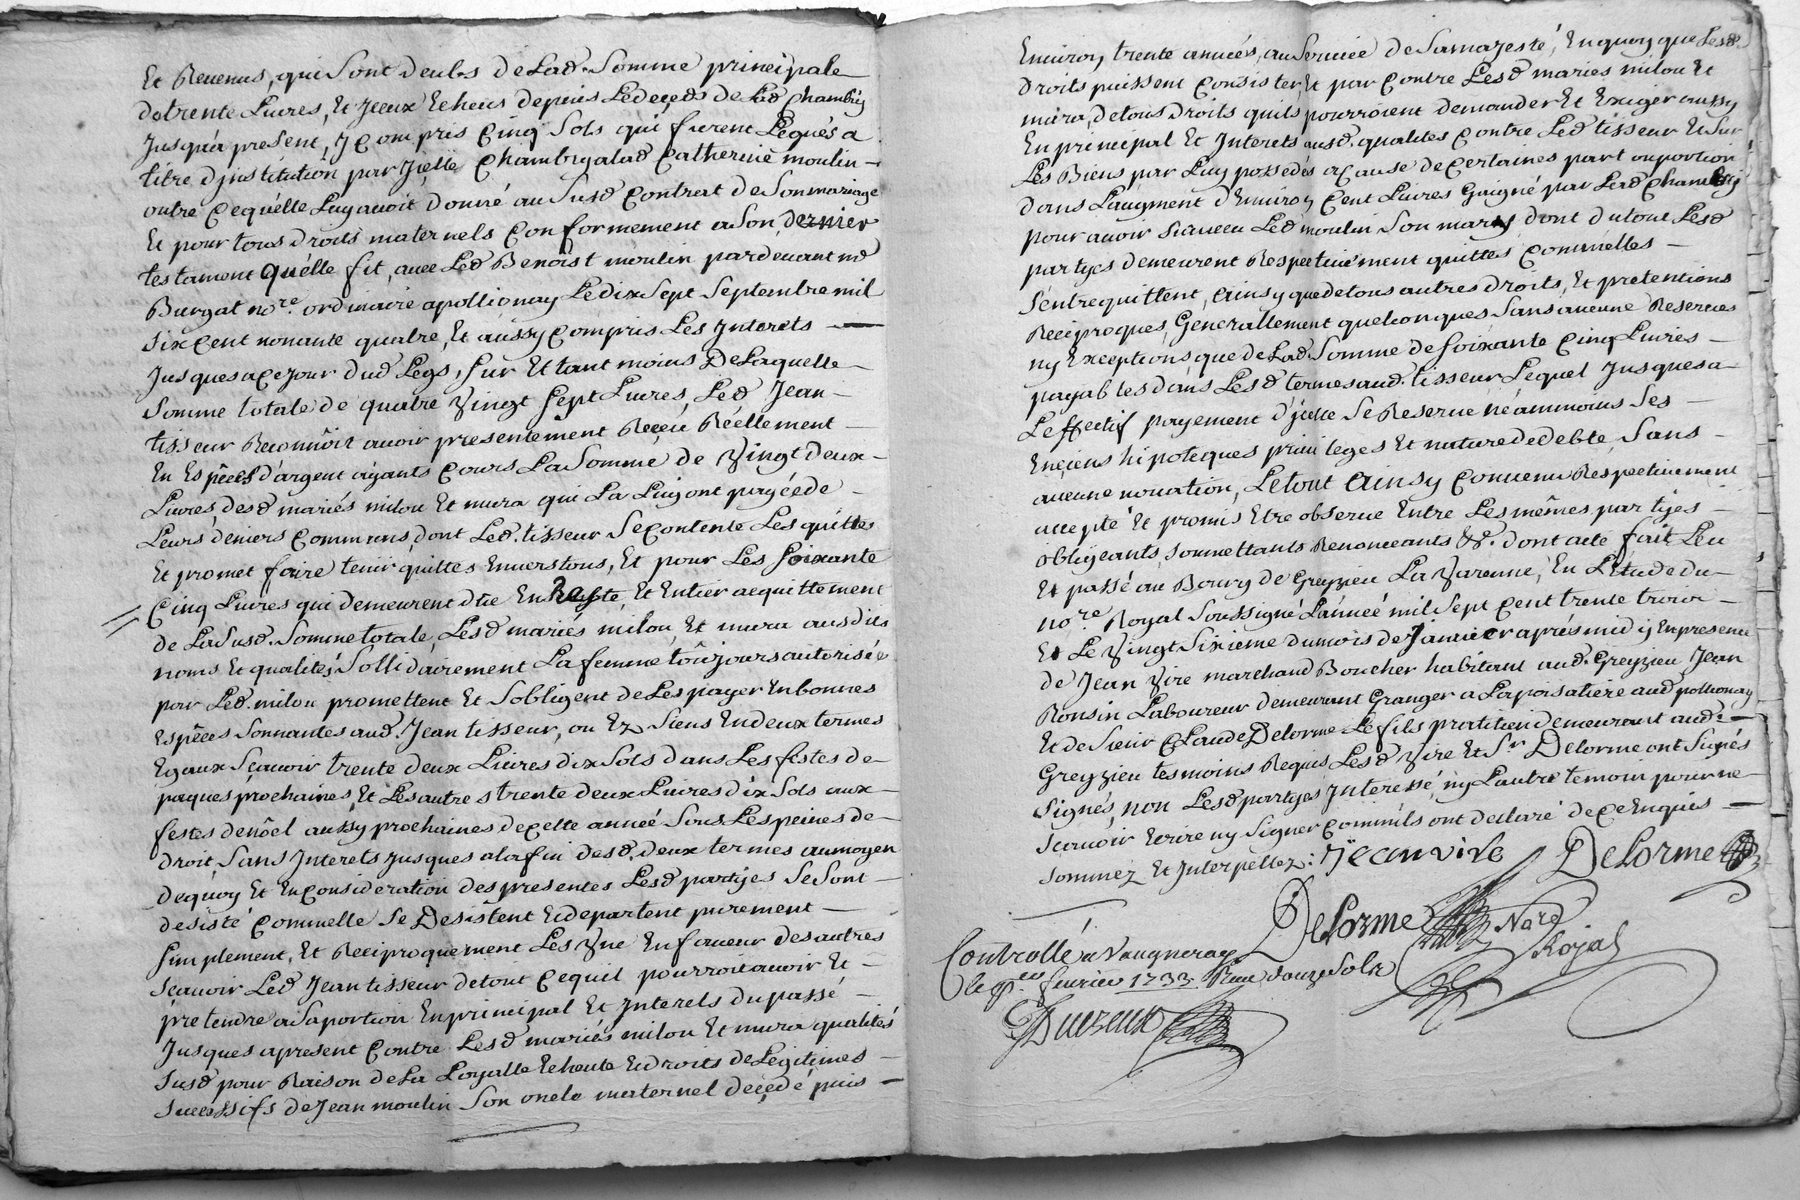 Et Revenus, qui sont deubs de Lad. Somme principale
de trente Livres, Et Iceux Echeus depuis Le deceds de Lad Chambry
Jusqu'a present, y Compris Cinq Sols qui furent Legués a
titre d'jnstitution par Jcelle Chambry alad Catherine moulin -
outre Ce quélle Luy avoit Donné au Susd Contrat de Son mariage
Et pour tous Droits maternels Conformement a Son Dernier
testament quélle fit, avec Led Benoist moulin pardevant me
Burgat no.re ordinaire a pollionay Le dix Sept Septembre mil
six Cent nonante quatre, Et aussy Compris Les Interets -
Jusques a Ce jour dud Legs, Sur Et tant moins De Laquelle -
Somme totale de quatre Vingt Sept Livres, Led Jean -
tisseur Reconnôit avoir presentement Reçeu Réellement -
En Espêces d'argent ayants Cours La Somme de Vingt deux -
Livres, desd mariés milou Et mura qui La Luy ont payée de -
Leurs deniers Communs, dont Led. tisseur Se Contente Les quitte
Et promet faire tenir quittes Envers tous, Et pour Les Soixante
Cinq Livres qui demeurent düe En Reste, Et Entier acquittement
de La Susd. Somme totale, Lesd mariés milou Et mura ausdits
noms Et qualités Sollidairement La femme toûjours autorisée
par Led. milou promettent Et S'obligent de Les payer En bonnes
Espêces Sonnantes aud. Jean tisseur, ou Ez Siens En deux termes
Egaux Scavoir trente deux Livres dix Sols dans Les festes de -
paques prochaines, Et Les autres trente deux Livres dix Sols aux -
festes de nôel aussy prochaines de Cette année Sous Les peines de -
Droit, Sans Interets Jusques a la fin desd. deux termes au moyen
De quoy Et En Consideration des presentes Lesd partyes Se Sont -
desisté Comm'elle Se Desistent Et departent purement -
Simplement, Et Reciproquement Les Vns En faveur des autres
Scavoir Led Jean tisseur de tout Ce quil pourroit avoir Et -
pretendre a Sa portion En principal Et Interets du passé -
Jusques a present Contre Lesd mariés milou Et mura qualités
Susd pour Raison de La Loyalle Echeute Et Droits de Legitimes -
Successifs de Jean moulin Son oncle maternel deçedé puis -
Environ trente années, au Service de Sa majesté, En quoy que Lesd.
Droits puissent Consister Et par Contre Lesd mariés milou Et
mura, de tous Droits quils pourroient demander Et Exiger aussy
En principal Et Interets ausd. qualités Contre Led tisseur Et Sur
Les Biens par Luy possedés a Cause de Certaines part ou portion
Dans L'augment d'Environ Cent Livres Gaigné par Lad Chambry
pour avoir Survecu Led moulin Son mary dont du tout Lesd
partyes demeurent Respectivement quittes Comm'elles -
S'entrequittent, ainsy que de tous autres Droits, Et pretentions
Reciproques, Generallement quelconques Sans aucune Reserves
ny Exceptions que de Lad. Somme de Soixante Cinq Livres -
payables dans Lesd termes aud. tisseur Lequel Jusques a
L'effectif payement d'jcelle Se Reserve néammoins Ses -
Enciens hipoteques privileges Et nature de debte, Sans -
aucune novation, Le tout ainsy Convenu Respectivement
accepté Et promis Etre observé Entre Les mêmes partyes -
obligeants, Soumettants Renonceants &c. dont acte fait Leu
Et passé au Bourg de Greyzieu La Varenne, En L'Etude du -
no.re Royal Soussigné L'année mil Sept Cent trente trois -
Et Le Vingt Sixieme du mois de Janvier aprés midi, En presence
de Jean Vire marchand Boucher habitant aud. Greyzieu Jean
Ronsin Laboureur demeurant Granger a La poisatiere aud pollionay
Et de Sieur Claude Delorme Le fils pratitien demeurant aud. -
Greyzieu tesmoins Requis Lesd Vire Et Sr Delorme ont Signés
Signés, non Lesd partyes Interessé, ny L'autre temoin pour ne -
Scavoir Ecrire ny Signer Comm'ils ont declaré de Ce Enquis -
Sommez Et Interpellez : Jean vire Delorme
Delorme Nore Royal
Controllé a Vaugneray
le p.er fevrier 1733. Reçu douze Sols
Duereux